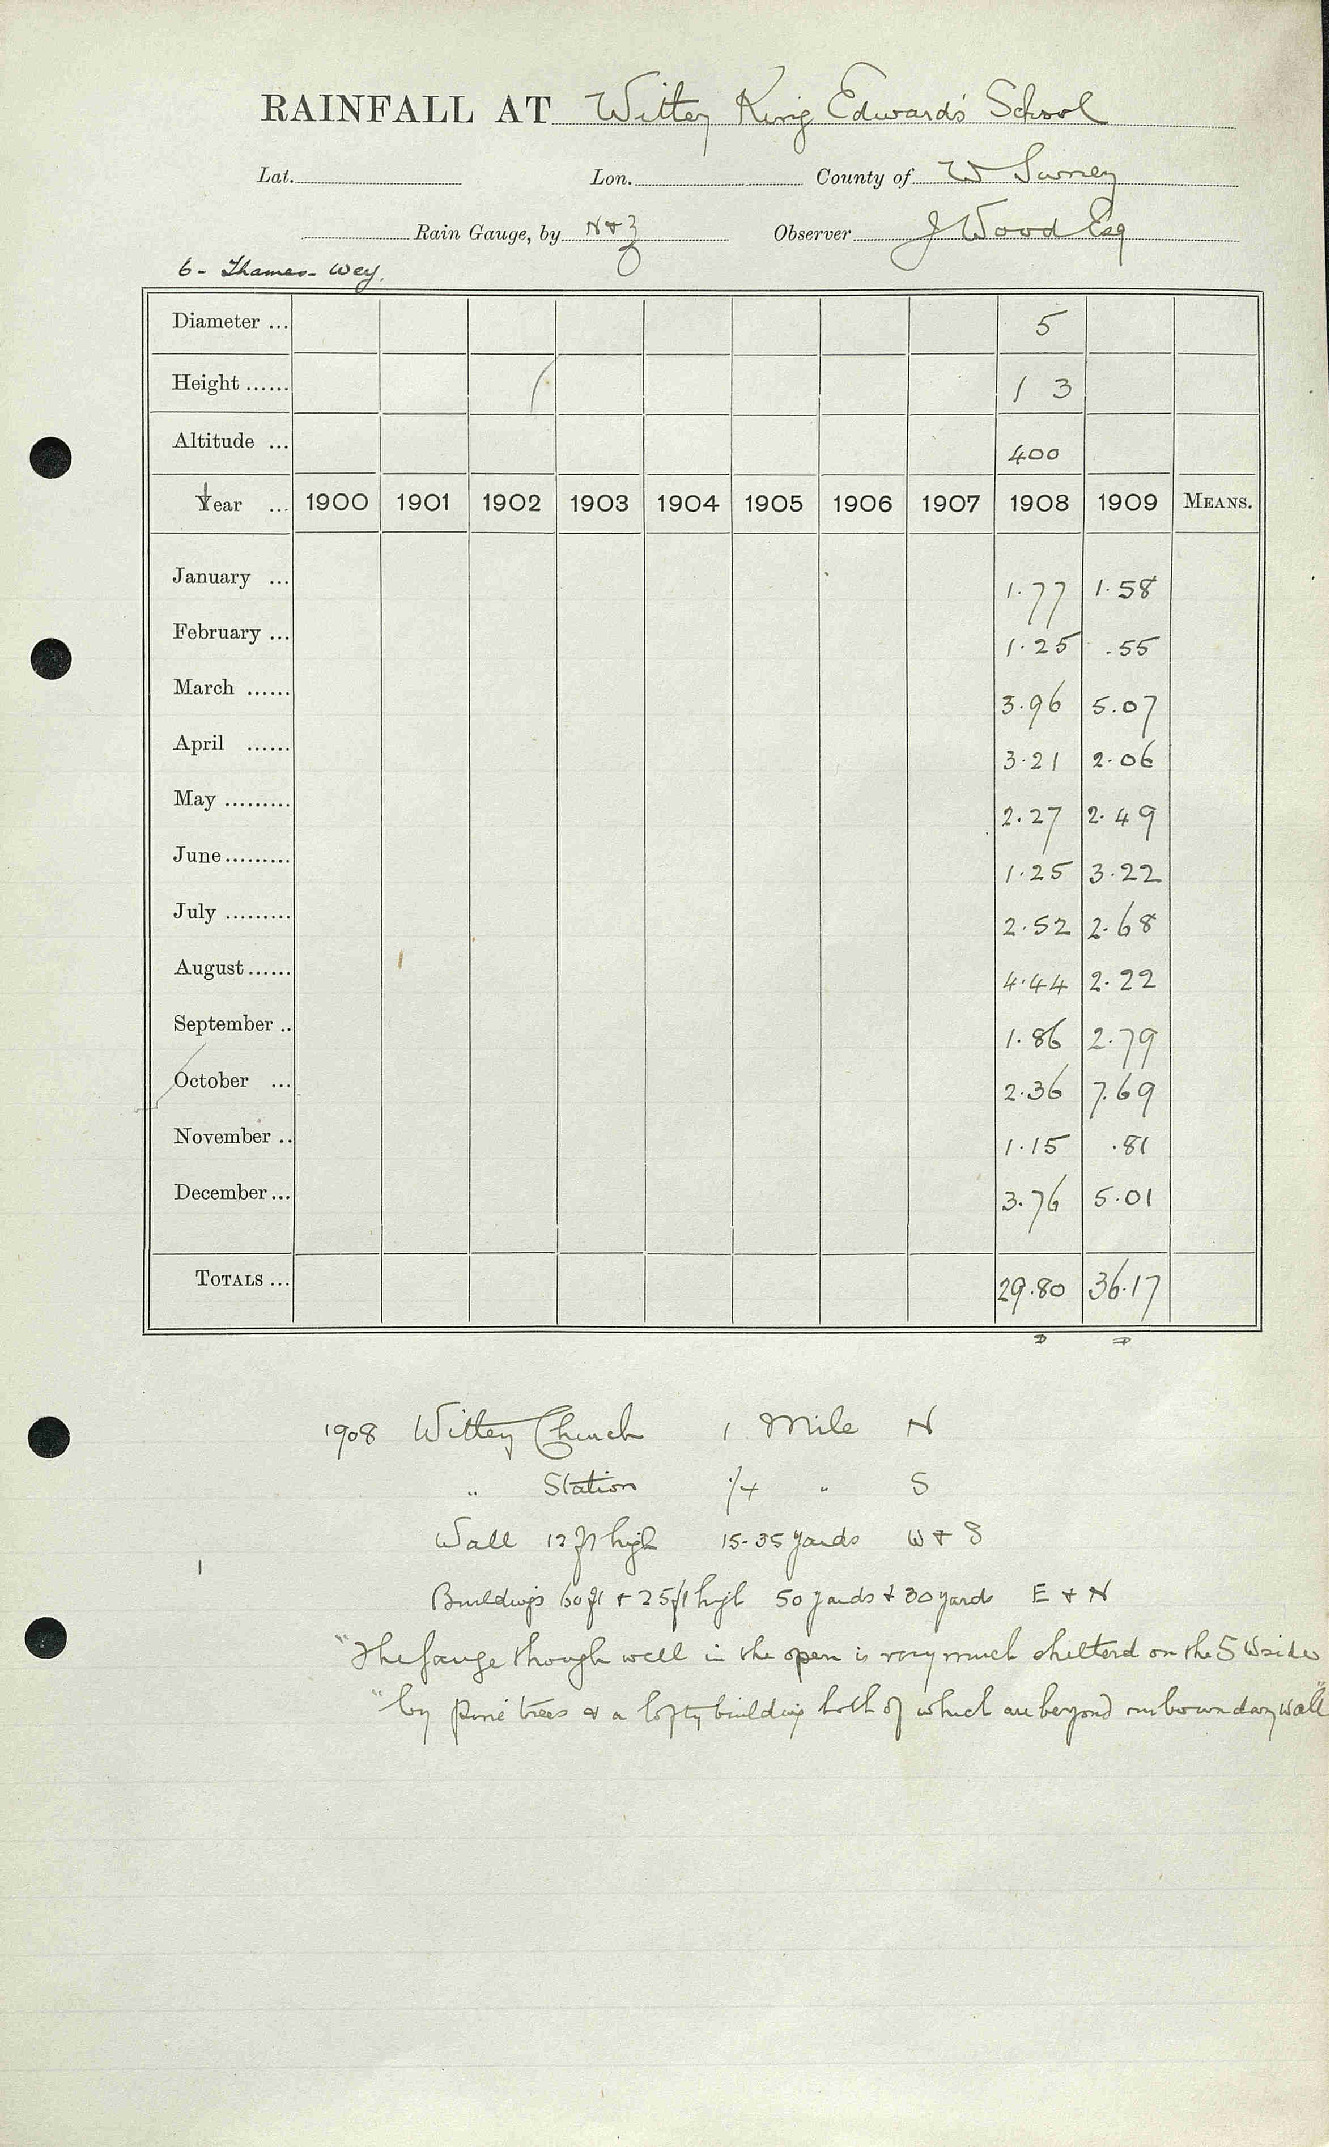 RAINFALL AT Witley King Edward's School
Lat. Lon. County of W Surrey
Rain Gauge, by N & Z Observer J Wood Esq
6 - Thames - Wey.
Diameter ... 5
Height ...... 1 3
Altitude ... 400
Year ... 1900 1901 1902 1903 1904 1905 1906 1907 1908 1909 MEANS.
January ... 1.77 1.58
February ... 1.25 .55
March ...... 3.96 5.07
April ...... 3.21 2.06
May ......... 2.27 2.49
June ......... 1.25 3.22
July ......... 2.52 2.68
August ...... 4.44 2.22
September .. 1.86 2.79
October ... 2.36 7.69
November .. 1.15 .81
December ... 3.76 5.01
TOTALS ... 29.80 36.17
1908 Witley Church 1 Mile N
" Station 1/4 " S
Wall 12 ft high 15-35 yards W & S
Buildings 60 ft & 25 ft high 50 yards & 30 yards E & N
"The gauge though well in the open is very much shelterd on the S W side
"by pine trees & a lofty building both of which are beyond our boundary wall"